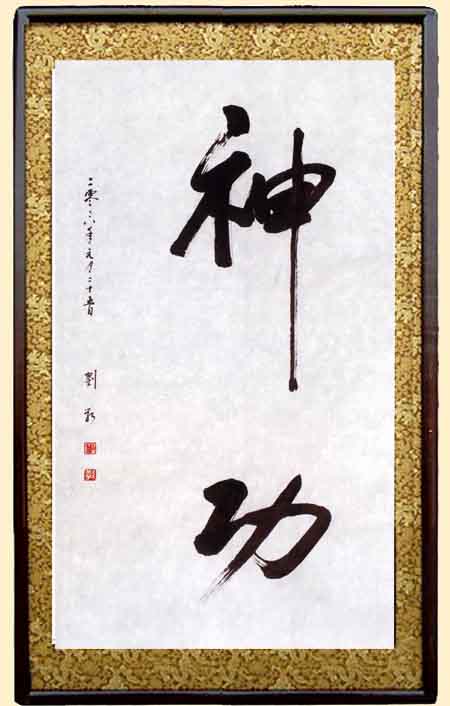 神功
二零零六年元月二十五日
劉